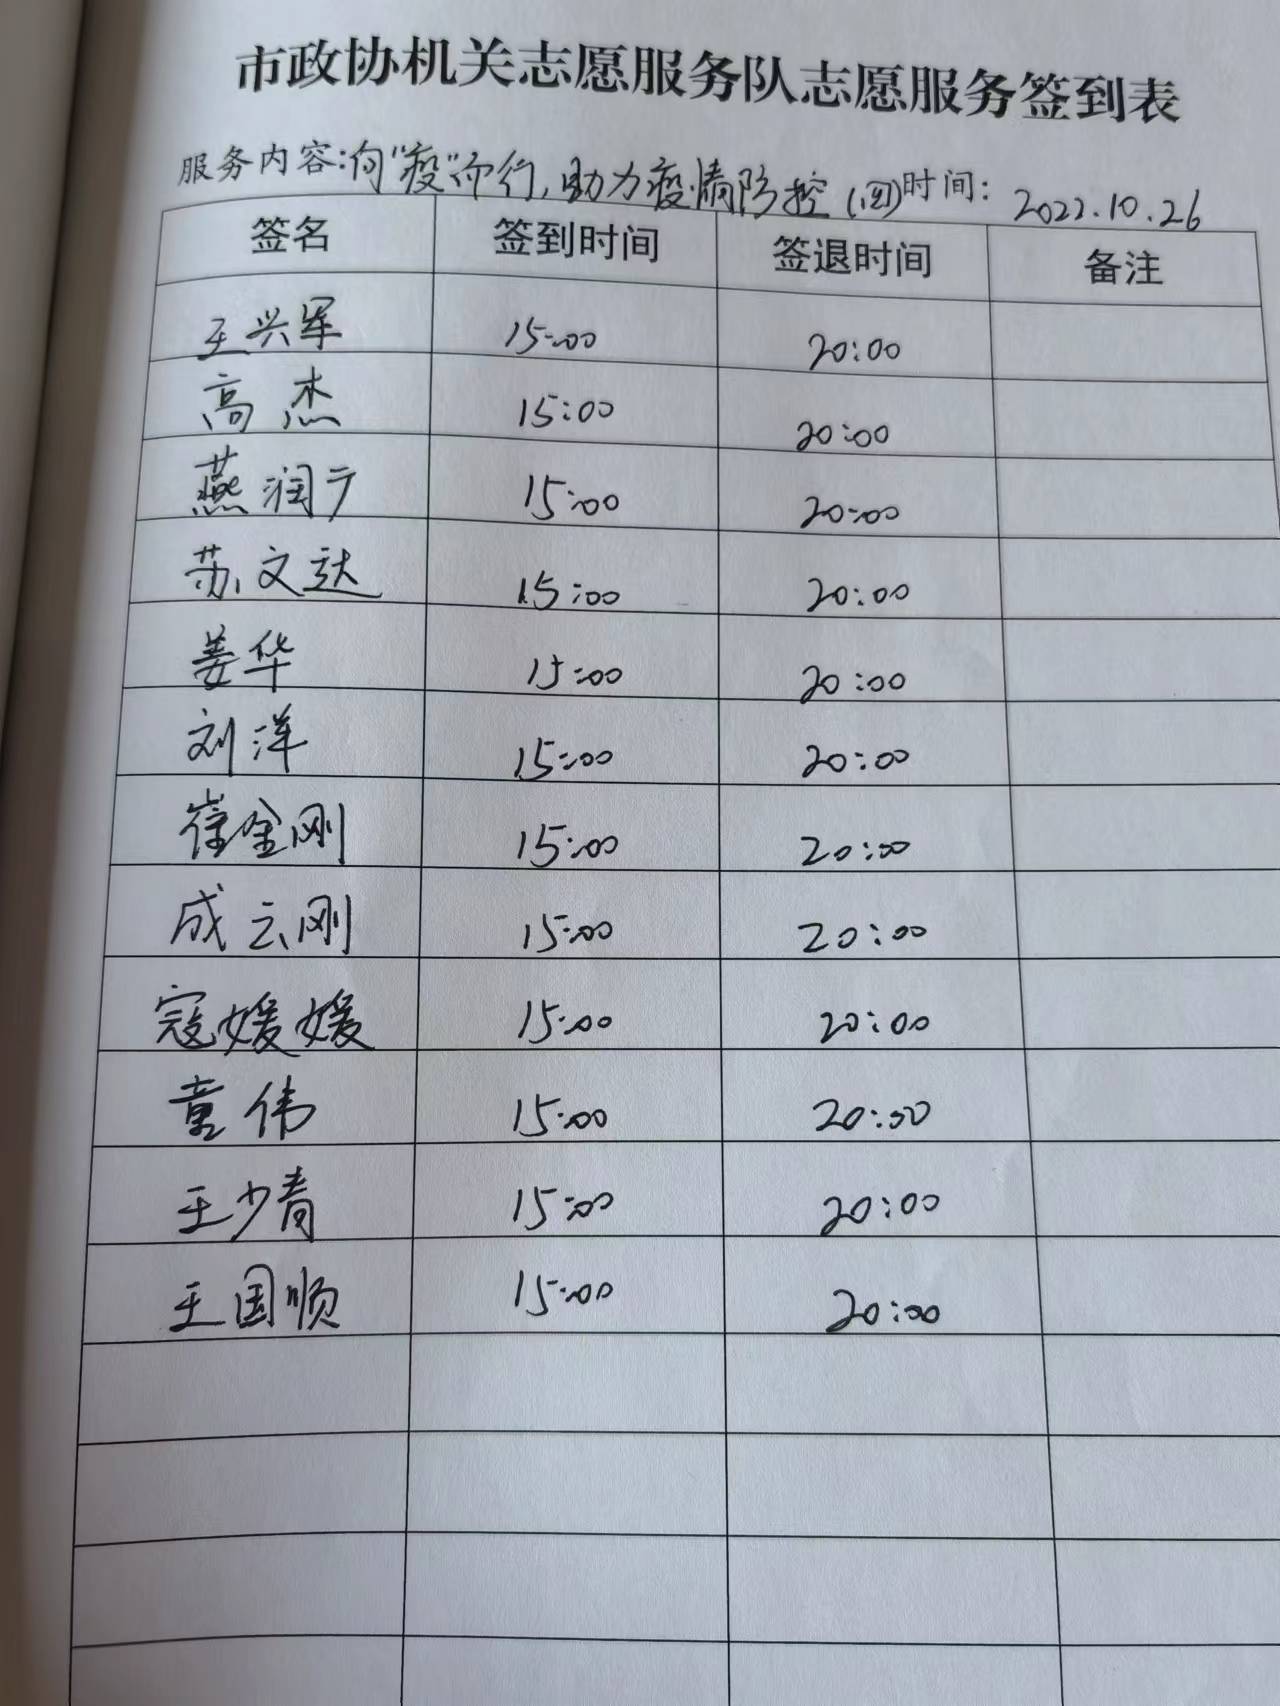 市政协机关志愿服务队志愿服务签到表
服务内容:向"疫"而行,助力疫情防控(四)时间: 2022.10.26
签名 签到时间 签退时间 备注
王兴军 15:00 20:00
高杰 15:00 20:00
燕润广 15:00 20:00
苏文达 15:00 20:00
姜华 15:00 20:00
刘洋 15:00 20:00
崔金刚 15:00 20:00
成云刚 15:00 20:00
寇媛媛 15:00 20:00
童伟 15:00 20:00
王少青 15:00 20:00
王国顺 15:00 20:00